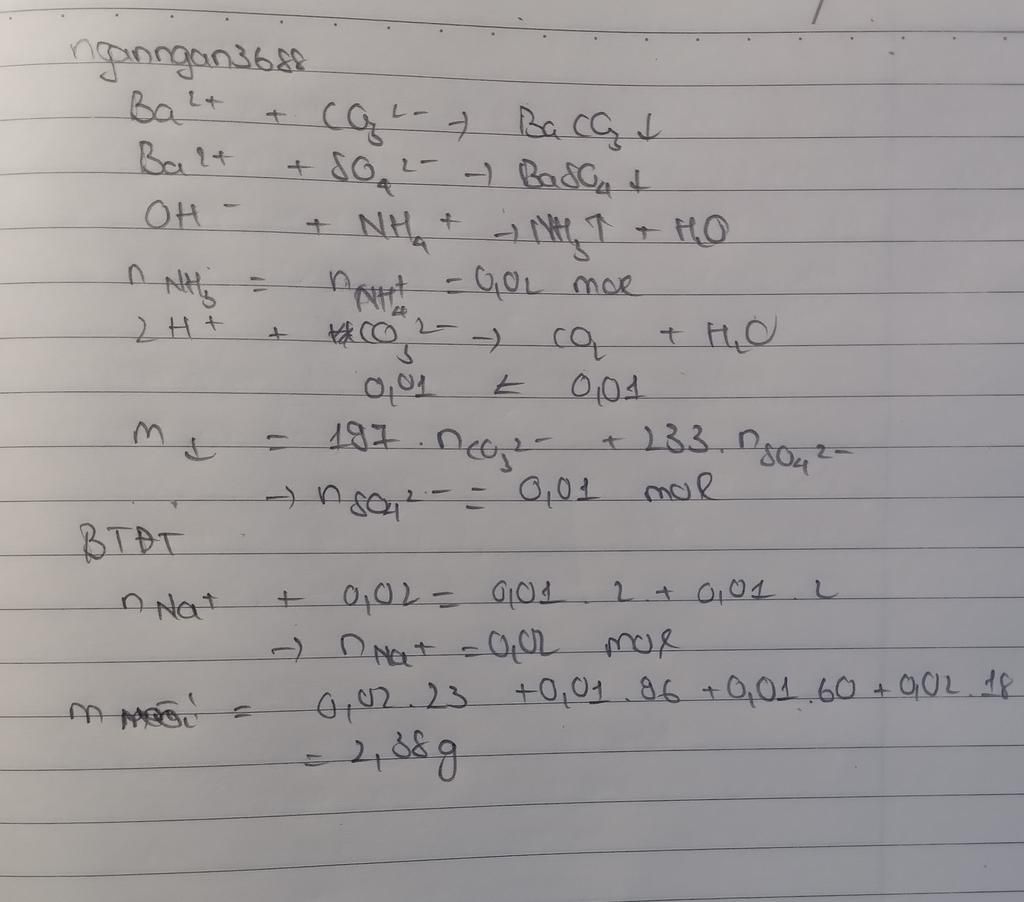 nganngan3688
Ba²⁺ + CO₃²⁻ → BaCO₃↓
Ba²⁺ + SO₄²⁻ → BaSO₄↓
OH⁻ + NH₄⁺ → NH₃↑ + H₂O
n NH₃ = n NH₄⁺ = 0,02 mol
2H⁺ + CO₃²⁻ → CO₂ + H₂O
0,01 ← 0,01
m↓ = 197 . nCO₃²⁻ + 233. nSO₄²⁻
→ nSO₄²⁻ = 0,01 mol
BTĐT
nNa⁺ + 0,02 = 0,01 . 2 + 0,01 . 2
→ nNa⁺ = 0,02 mol
m muối = 0,02.23 + 0,01.96 + 0,01.60 + 0,02.18
= 2,38g